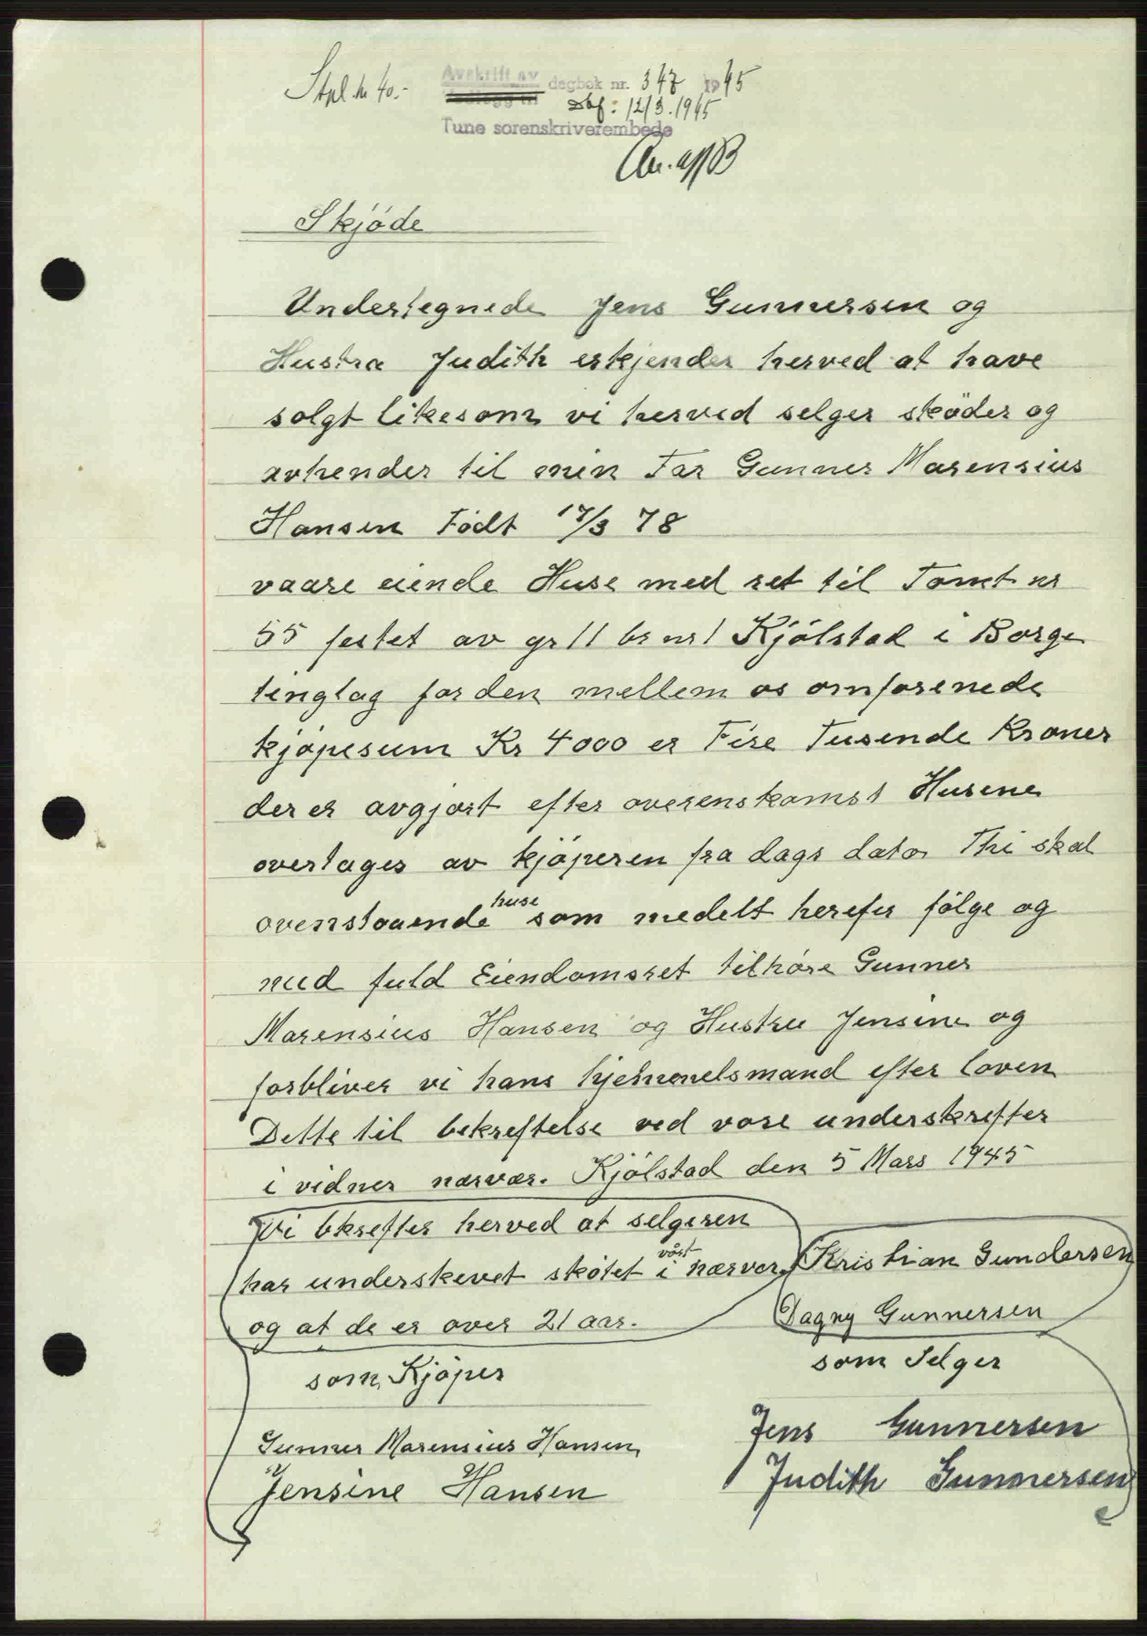 Stpl. kr 40.-
Avskrift av dagbok nr. 347 1945
Dbf: 12/3. 1945
Tune sorenskriverembede
Skjøde
Undertegnede Jens Gunnersen og
Hustru Judith erkjender herved at have
solgt likesom vi herved selger skøder og
avhender til min Far Gunner Marensius
Hansen Født 17/3 78
vaare eiende Huse med ret til Tomt nr
55 festet av gr 11 br nr 1 Kjølstad i Borge
tinglag for den mellem os omforenede
kjøpesum Kr 4000 er Fire Tusende Kroner
der er avgjort efter overenskomst Husene
overtages av kjøperen fra dags dato Thi skal
ovenstaaende huse som medelt herefer følge og
med fuld Eiendomsret tilhøre Gunner
Marensius Hansen og Hustru Jensine og
forbliver vi hans hjemmelsmand efter loven
Dette til bekreftelse ved vore underskrefter
i vidner nærvær. Kjølstad den 5 Mars 1945
Vi bkrefter herved at selgeren
har underskevet skøtet i vårt nærver
og at de er over 21 aar.
Kristian Gundersen
Dagny Gunnersen
som Kjøper
som Selger
Gunner Marensius Hansen
Jensine Hansen
Jens Gunnersen
Judith Gunnersen